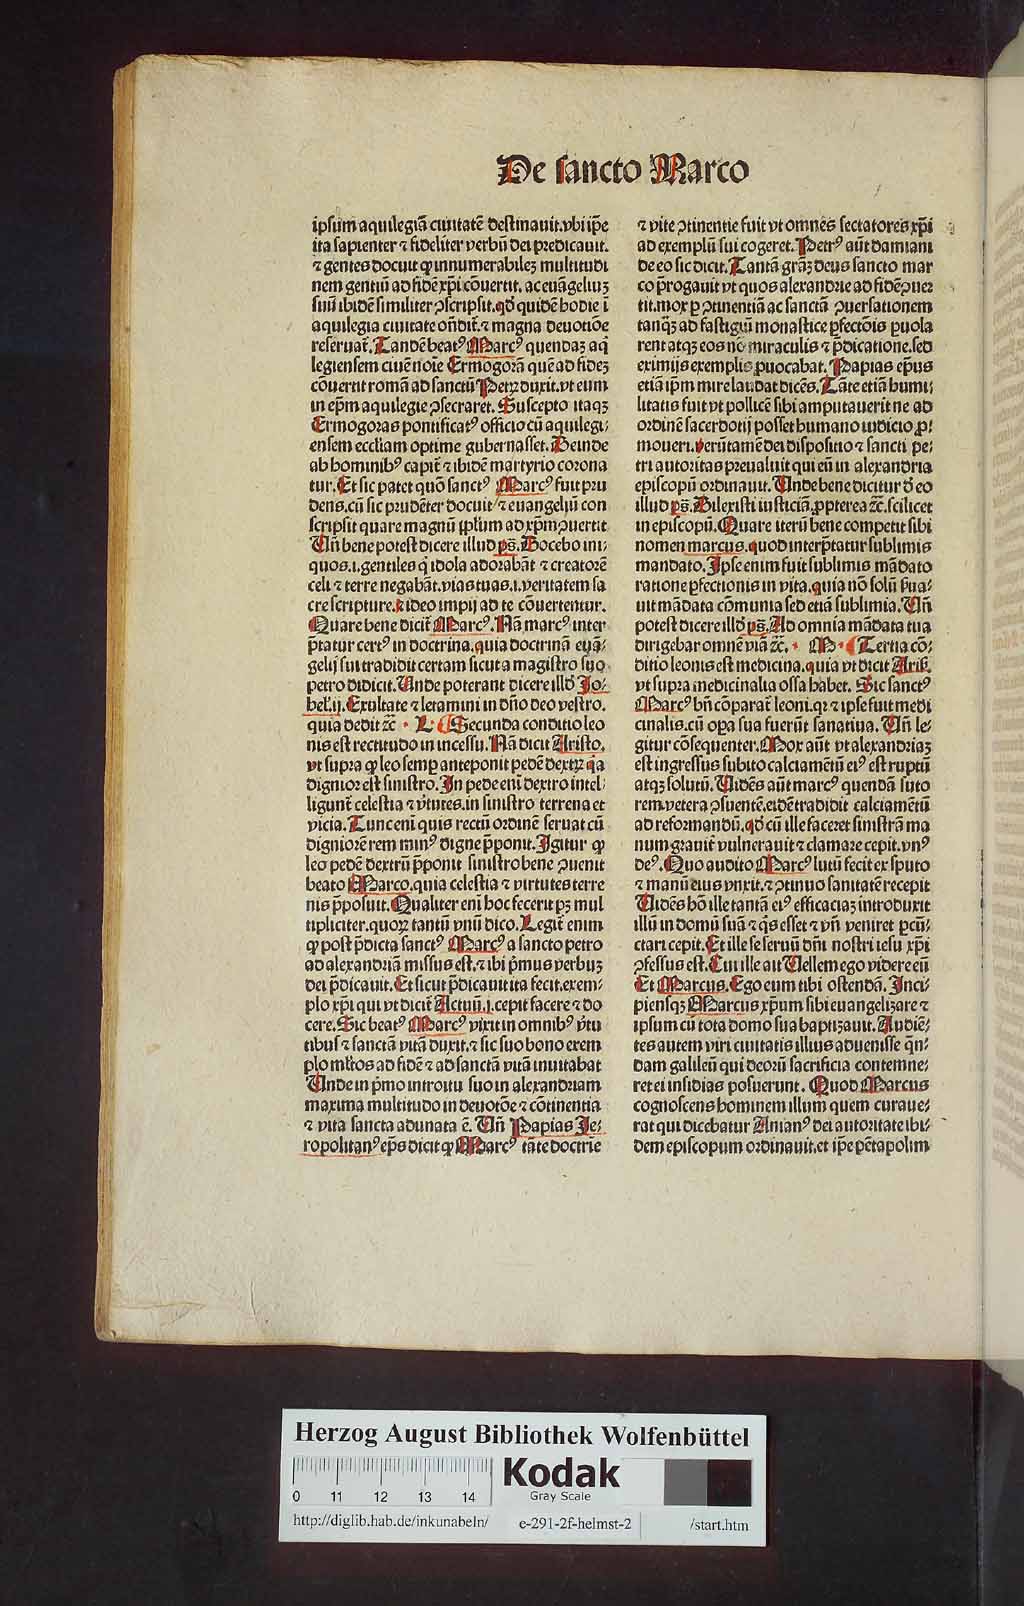 De sancto Marco
ipsum aquilegiā ciuitatē destinauit.vbi ip̄e
ita sapienter ⁊ fideliter verbū dei predicauit.
⁊ gentes docuit ꝙ innumerabilez multitudi
nem gentiū ad fidē xp̄i cōuertit. ac euāgeliuꝫ
suū ibidē similiter ꝯscripsit.qd̄ quidē hodie ī
aquilegia ciuitate on̄dit̄.⁊ magna deuotiōe
reseruat̄. Tandē beatꝰ Marcꝰ quendaꝫ aq̄
legiensem ciuē noīe Ermogorā quē ad fideꝫ
cōuertit romā ad sanctū Petrꝫ duxit.vt eum
in ep̄m aquilegie ꝯsecraret. Suscepto itaqꝫ
Ermogoras pontificatꝰ officio cū aquilegi⸗
ensem eccl̄iam optime gubernasset. Deinde
ab hominibꝰ capit̄ ⁊ ibidē martyrio corona
tur. Et sic patet quō sanctꝰ Marcꝰ fuit pru
dens.cū sic prudēter docuit ⁊ euangeliū con
scripsit quare magnū pl̄m ad xp̄m ꝯuertit
Un̄ bene potest dicere illud ps̄. Docebo ini⸗
quos.i.gentiles q̄ idola adorabāt ⁊ creatorē
celi ⁊ terre negabāt.vias tuas.i.veritatem sa
cre scripture.⁊ ideo impij ad te cōuertentur.
Quare bene dicit̄ Marcꝰ. Nā marcꝰ inter
p̄tatur certꝰ in doctrina.quia doctrinā euā⸗
gelij sui tradidit certam sicut a magistro suo
petro didicit. Unde poterant dicere illd̄ Jo⸗
hel.ij. Exultate ⁊ letamini in dn̄o deo vestro.
quia dedit ⁊c̄ · L · Secunda conditio leo
nis est rectitudo in incessu. Nā dicit Aristo.
vt supra ꝙ leo semp̄ anteponit pedē dextrꝫ q̄a
dignior est sinistro. In pede eni dextro intel⸗
ligunt̄ celestia ⁊ v̄tutes.in sinistro terrena et
vicia. Tunc eni quis rectū ordinē seruat cū
digniorē rem minꝰ digne p̄ponit. Igitur ꝙ
leo pedē dextrū p̄ponit sinistro bene ꝯuenit
beato Marco.quia celestia ⁊ virtutes terre
nis p̄posuit. Qualiter eni hoc fecerit pꝫ mul
tipliciter.quoꝝ tantū vnū dico. Legit̄ enim
ꝙ post p̄dicta sanctꝰ Marcꝰ a sancto petro
ad alexandriā missus est.⁊ ibi p̄mus verbuꝫ
dei p̄dicauit. Et sicut p̄dicauit ita fecit.exem⸗
plo xp̄i qui vt dicit̄ Actuū.j.cepit facere ⁊ do
cere. Sic beatꝰ Marcꝰ vixit in omnibꝰ v̄tu
tibus ⁊ sanctā vitā duxit.⁊ sic suo bono exem
plo ml̄tos ad fidē ⁊ ad sanctā vitā inuitabat
Unde in p̄mo introitu suo in alexandriam
maxima multitudo in deuotōe ⁊ cōtinentia
⁊ vita sancta adunata ē. Un̄ Papias Je⸗
ropolitanꝰ ep̄s dicit ꝙ Marcꝰ tāte doctrīe
⁊ vite ꝯtinentie fuit vt omnes sectatores xp̄i
ad exemplū sui cogeret. Petrꝰ aūt damiani
de eo sic dicit. Tantā gr̄aꝫ deus sancto mar
co p̄rogauit vt quos alexandrie ad fidē ꝯuer
tit.mox ꝑ ꝯtinentiā ac sanctā ꝯuersationem
tanqꝫ ad fastigiū monastice ꝑfectōis ꝑuola
rent atqꝫ eos nō miraculis ⁊ p̄dicatione.sed
eximijs exemplis ꝓuocabat. Papias ep̄us
etiā ip̄m mire laudat dicēs. Tāte etiā humi⸗
litatis fuit vt pollicē sibi amputauerit ne ad
ordinē sacerdotij posset humano iudicio ꝓ⸗
moueri. verūtamē dei dispositio ⁊ sancti pe⸗
tri autoritas preualuit qui eū in alexandria
episcopū ordinauit. Unde bene dicitur d̄ eo
illud ps̄. Dilexisti iusticiā.ꝓpterea ⁊c̄.scilicet
in episcopū. Quare iterū bene competit sibi
nomen marcus.quod interp̄tatur sublimis
mandato. Ipse enim fuit sublimis mādato
ratione ꝑfectionis in vita.quia nō solū s̄ua⸗
uit mādata cōmunia sed etiā sublimia. Un̄
potest dicere illd̄ ps̄. Ad omnia mādata tua
dirigebar omnē viā ⁊c̄. · M · Tertia cō⸗
ditio leonis est medicina.quia vt dicit Aris̄.
vt supra medicinalia ossa habet. Sic sanctꝰ
Marcꝰ bn̄ cōparat̄ leoni.qꝛ ⁊ ipse fuit medi
cinalis.cū oꝑa sua fuerūt sanatiua. Un̄ le⸗
gitur cōsequenter. Mox aūt vt alexandriaꝫ
est ingressus subito calciamētū eiꝰ est ruptū
atqꝫ solutū. Uidēs aūt marcꝰ quendā suto
rem vetera ꝯsuentē.eidē tradidit calciamētū
ad reformandū.qd̄ cū ille faceret sinistrā ma
num grauit̄ vulnerauit ⁊ clamare cepit.vnꝰ
deꝰ. Quo audito Marcꝰ lutū fecit ex sputo
⁊ manū eius vnxit.⁊ ꝯtinuo sanitatē recepit
Uidēs hō ille tantā eiꝰ efficaciaꝫ introduxit
illū in domū suā ⁊ q̄s esset ⁊ vn̄ veniret ꝑcū⸗
ctari cepit. Et ille se seruū dn̄i nostri iesu xp̄i
ꝯfessus est. Cui ille ait Uellem ego videre eū
Et Marcus. Ego eum tibi ostendā. Inci⸗
piensqꝫ Marcus xp̄um sibi euangelizare ⁊
ipsum cū tota domo sua baptizauit. Audiē⸗
tes autem viri ciuitatis illius aduenisse q̄n⸗
dam galileū qui deorū sacrificia contemne⸗
ret ei insidias posuerunt. Quod Marcus
cognoscens hominem illum quem curaue⸗
rat qui dicebatur Anianꝰ dei autoritate ibi⸗
dem episcopum ordinauit.et ip̄e pētapolim
Herzog August Bibliothek Wolfenbüttel
0 11 12 13 14
Kodak
Gray Scale
http://diglib.hab.de/inkunabeln/ e-291-2f-helmst-2 /start.htm